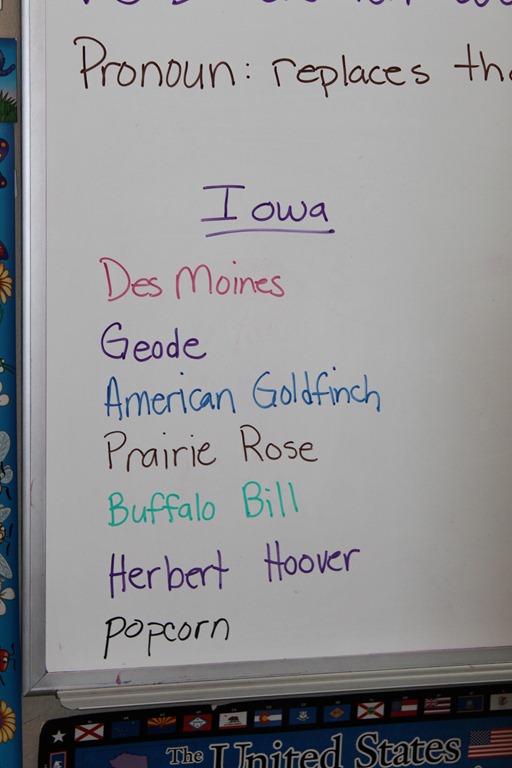 Pronoun: replaces
Iowa
Des Moines
Geode
American Goldfinch
Prairie Rose
Buffalo Bill
Herbert Hoover
popcorn
The United States